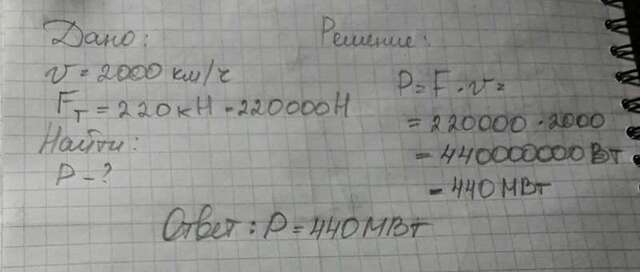 Дано:
Решение:
v = 2000 км/ч
F_T = 220 кН = 220000 Н
Найти:
P - ?
P = F · v =
= 220000 · 2000
= 440000000 Вт
= 440 МВт
Ответ: P = 440 МВт